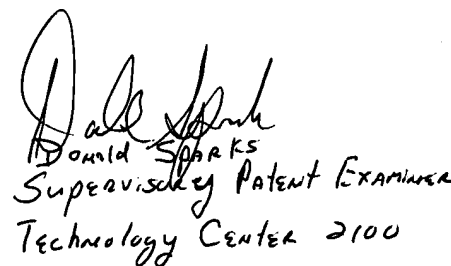 Donald Sparks
Supervisory Patent Examiner
Technology Center 2100